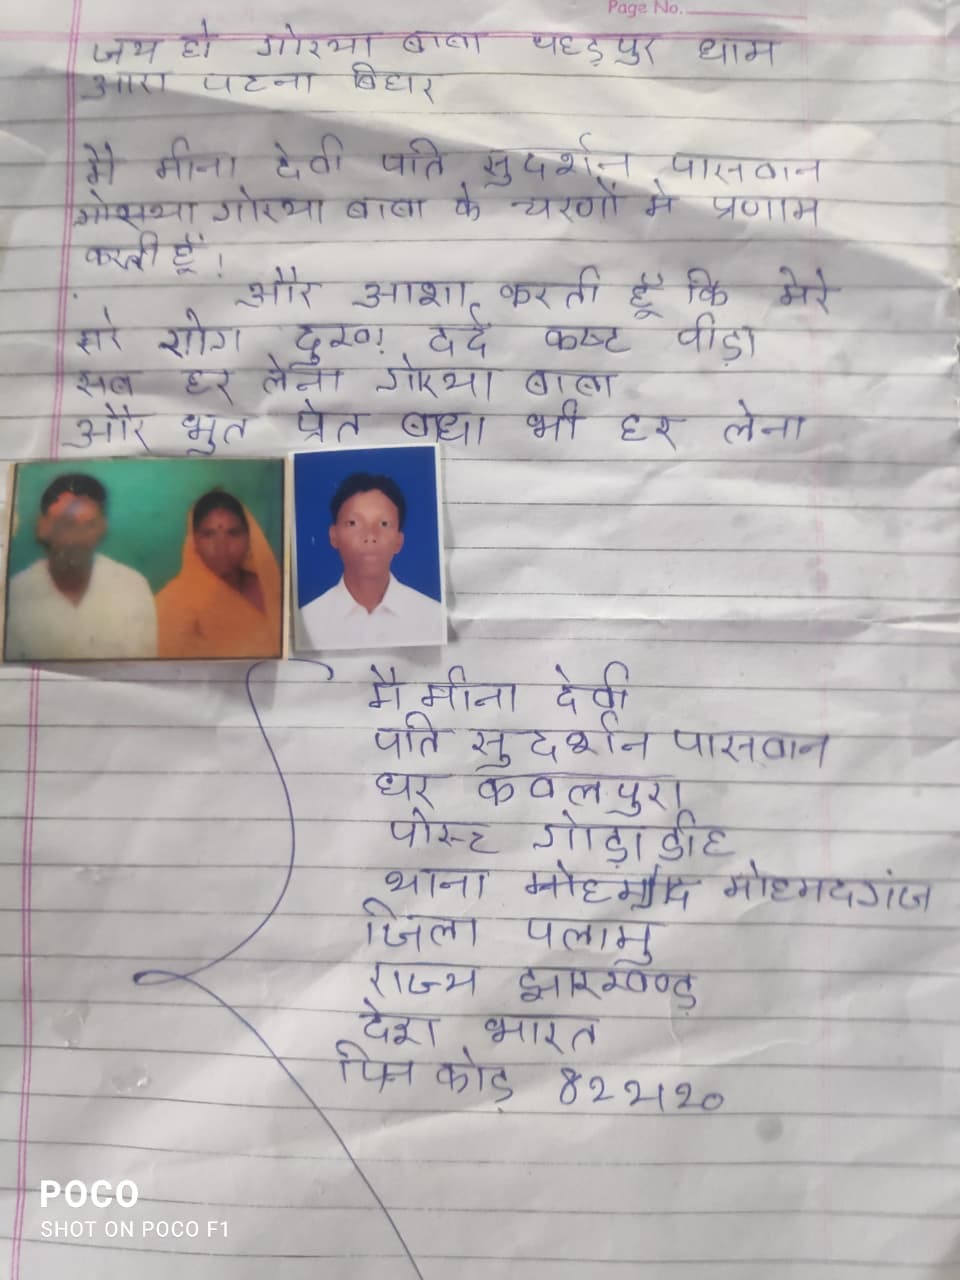 Page No.
जय हो गोरया बाबा पहड़पुर धाम
आरा पटना बिहार
मै मीना देवी पति सुदर्शन पासवान
गोरया बाबा के चरणों मे प्रणाम
करती हूँ!
और आशा करती हूँ कि मेरे
सारे रोग दुख! दर्द कष्ट पीड़ा
सब हर लेना गोरया बाबा
और भुत प्रेत बाधा भी हर लेना
मै मीना देवी
पति सुदर्शन पासवान
घर कवलपुरा
पोस्ट गोड़ाडीह
थाना मोहमदगंज
जिला पलामु
राज्य झारखण्ड़
देश भारत
पिन कोड़ 822120
POCO
SHOT ON POCO F1